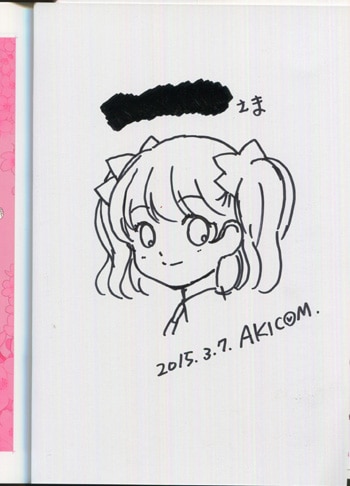 さま
2015.3.7. AKICOM.